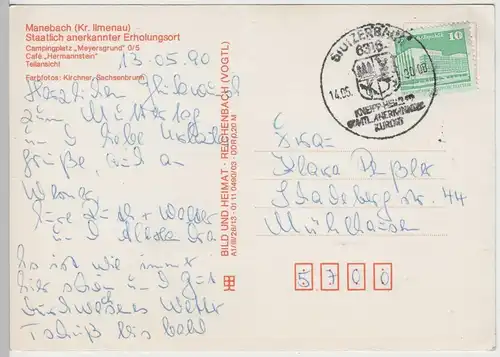 Manebach (Kr. Ilmenau)
Staatlich anerkannter Erholungsort
Campingplatz „Meyersgrund" 0/5
Café „Hermannstein"
Teilansicht
Farbfotos: Kirchner, Sachsenbrunn
13.05.90
Herzlichen Glückwunsch
zum Muttertag
und liebe Urlaubs
grüße, auch an
Werner
Eure + Walter
und
Es ist wie immer
hier oben und
Wetter
Tschüß bis bald
BILD UND HEIMAT · REICHENBACH (VOGTL)
A1/III/26/13 · 01 11 0490/03 · DDR 0,20 M
STÜTZERBACH
6316
14.05.
KNEIPP-HEILBAD
STAATL. ANERKANNTER
KURORT
10
Frau
Klara
str. 44
Mühlhausen
5700